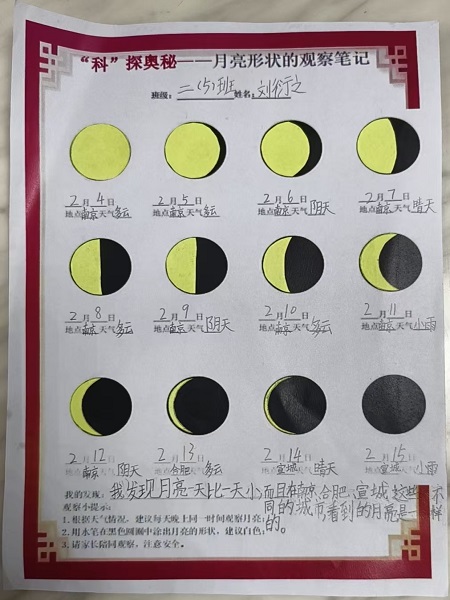 “科”探奥秘——月亮形状的观察笔记
班级：二(5)班 姓名：刘衍之
2月4日 2月5日 2月6日 2月7日
地点南京天气多云 地点南京天气多云 地点南京天气阴天 地点南京天气晴天
2月8日 2月9日 2月10日 2月11日
地点南京天气多云 地点南京天气阴天 地点南京天气多云 地点南京天气小雨
2月12日 2月13日 2月14日 2月15日
地点南京天气阴天 地点合肥天气多云 地点宣城天气晴天 地点宣城天气小雨
我的发现：我发现月亮一天比一天小，而且在南京、合肥、宣城这些不
同的城市看到的月亮是一样
的。
观察小提示：
1.根据天气情况，建议每天晚上同一时间观察月亮；
2.用水笔在黑色圆圈中涂出月亮的形状，建议白色；
3.请家长陪同观察，注意安全。